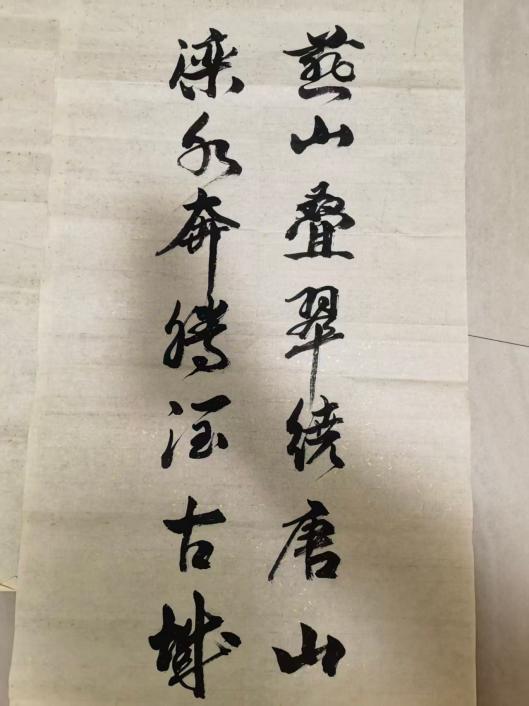 燕山叠翠绕唐山
滦水奔腾古城